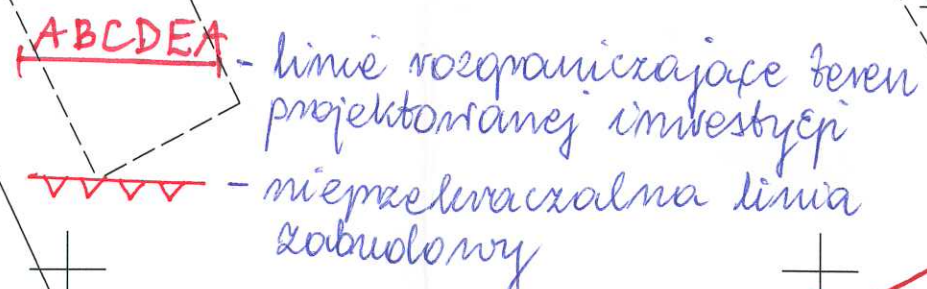 ABCDEA - linie rozgraniczające teren
projektowanej inwestycji
- nieprzekraczalna linia
zabudowy